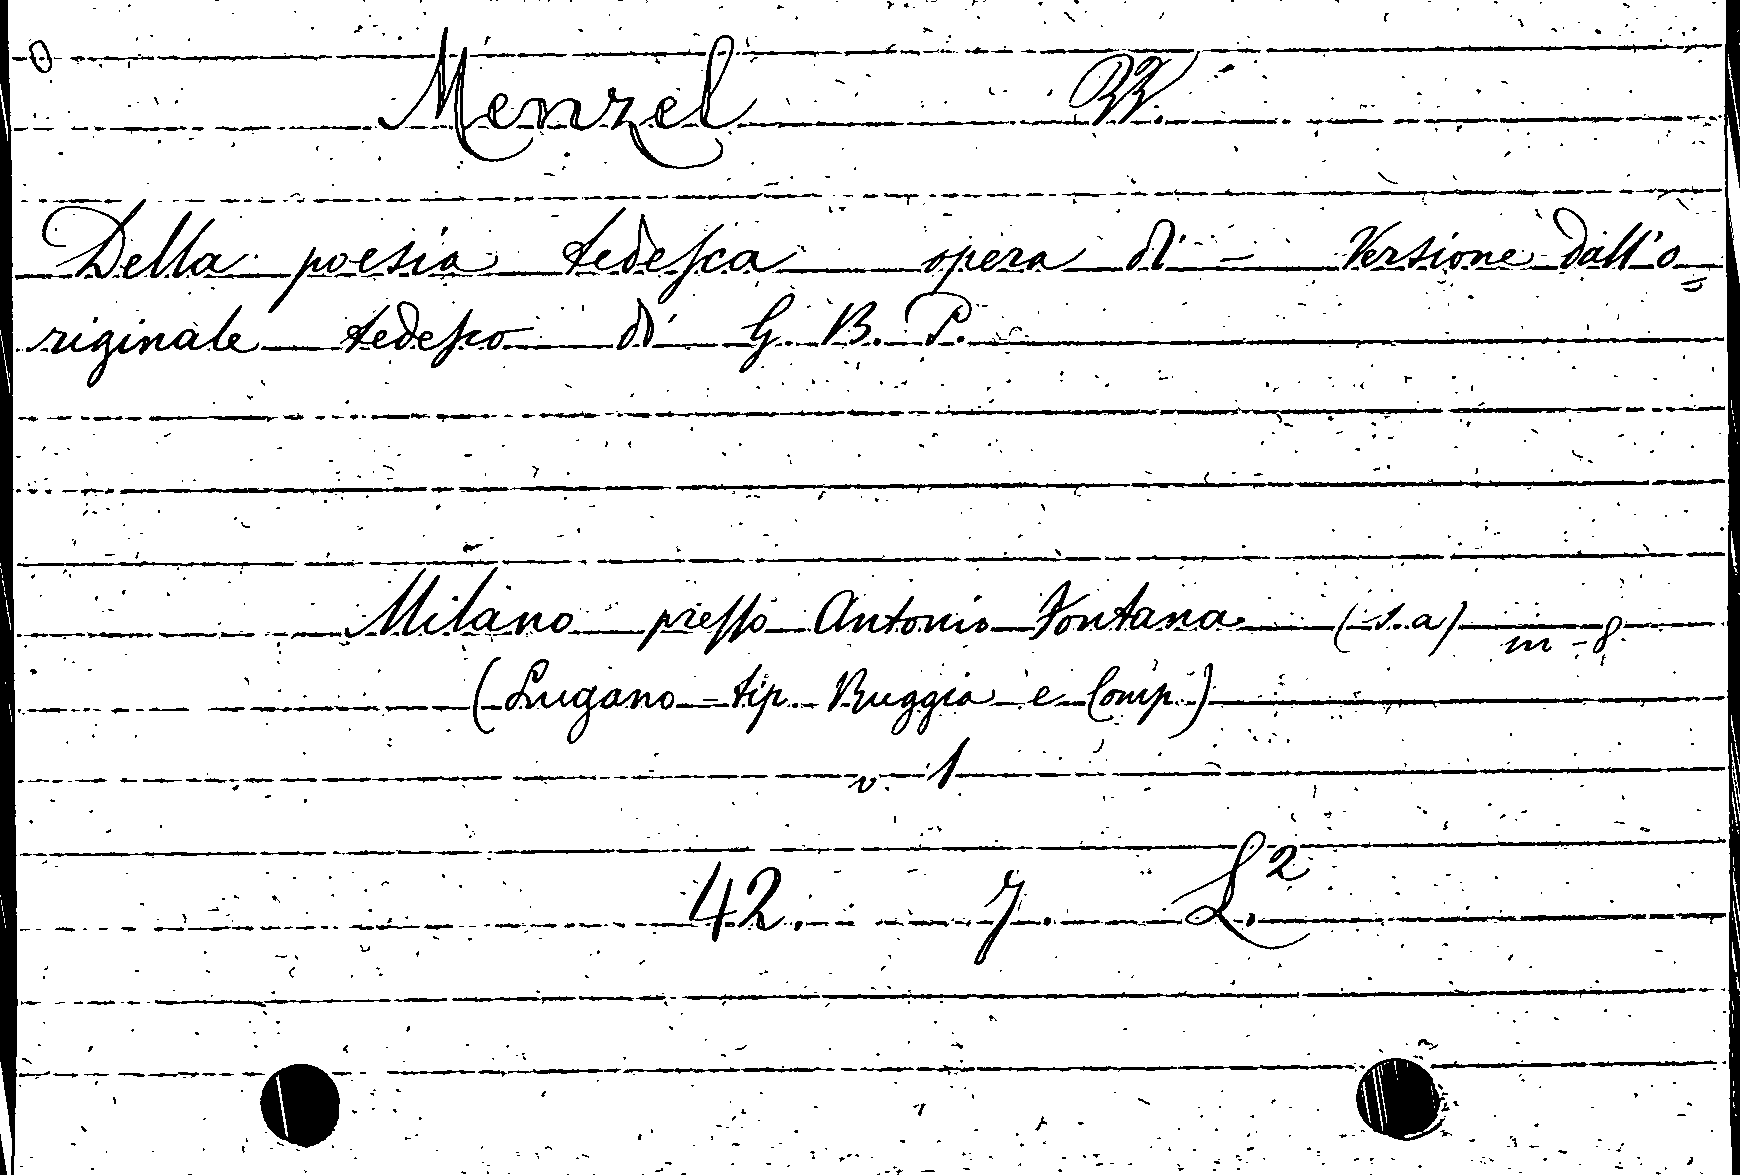 Menzel W.
Della poesia tedesca opera di - Versione dall'o=
riginale tedesco di G. B. P.
Milano presso Antonio Fontana (s.a) in-8
(Lugano - tip. Ruggia e Comp.)
v. 1
42. 7. L.2